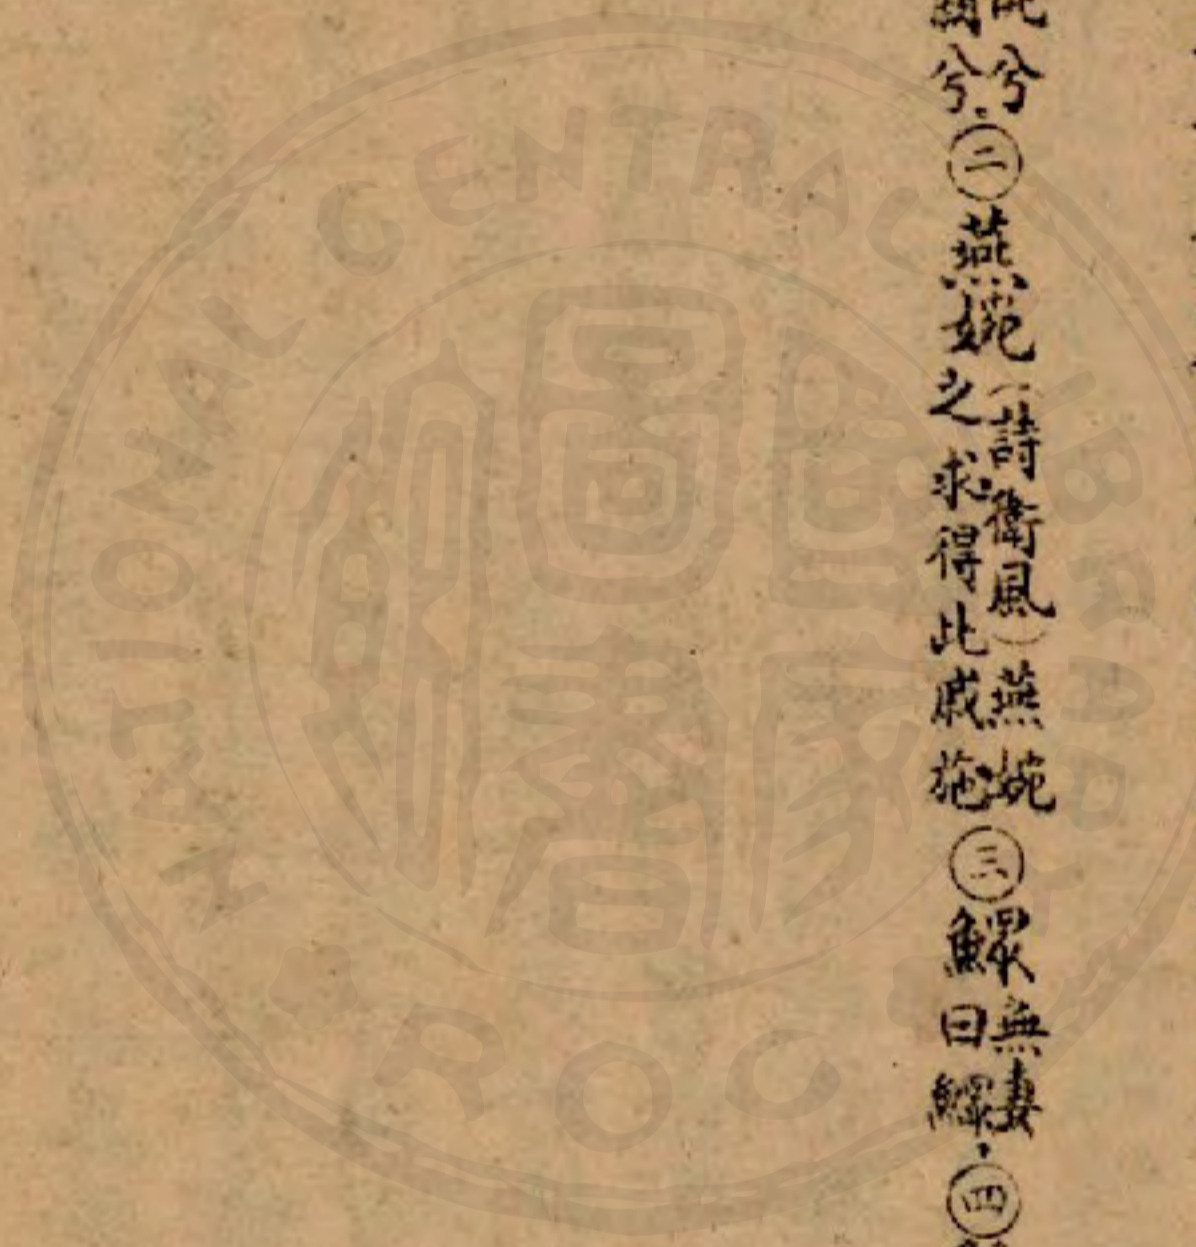 兮
兮.
㊁燕婉
(詩衛風)燕婉
之求得此戚施
㊂鰥
無妻
曰鰥.
㊃
NATIONAL CENTRAL LIBRARY
ROC
國家圖書館